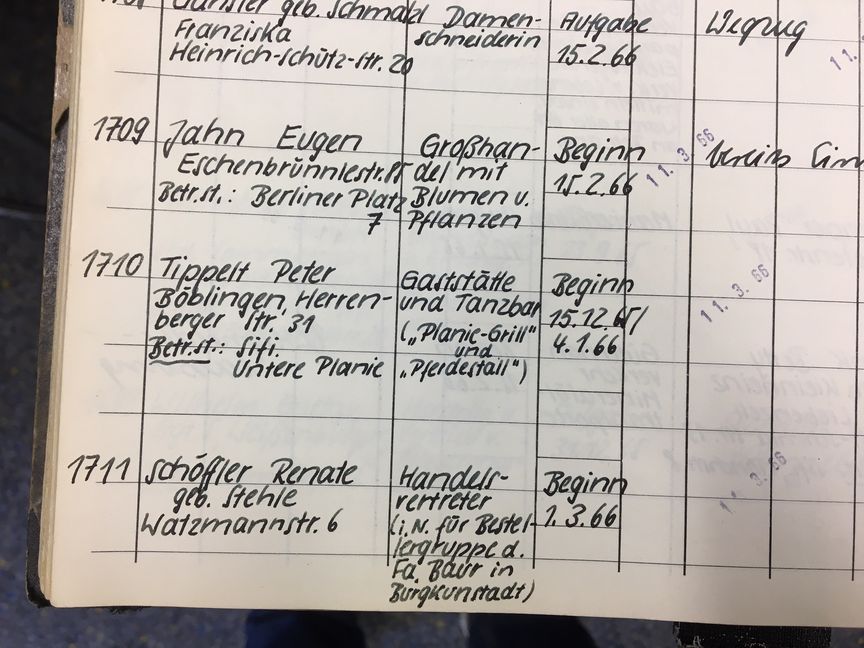 geb. Schmald Damen- Aufgabe Wegzug
Franziska schneiderin 15.2.66
Heinrich-Schütz-Str. 20
1709 Jahn Eugen Großhan- Beginn 11. 3. 66 bereits
Eschenbrünnlestr. del mit 15.2.66
Betr.st.: Berliner Platz Blumen u.
7 Pflanzen
1710 Tippelt Peter Gaststätte Beginn 11. 3. 66
Böblingen, Herren- und Tanzbar 15.12.
berger Str. 31 („Planie-Grill" 4.1.66
Betr.st.: Sifi. und
Untere Planie „Pferdestall")
1711 Schöffler Renate Handels- Beginn 11. 3. 66
geb. Stehle vertreter 1.3.66
Watzmannstr. 6 (i.N. für Bestel-
lergruppe d.
Fa. Baur in
Burgkunstadt)